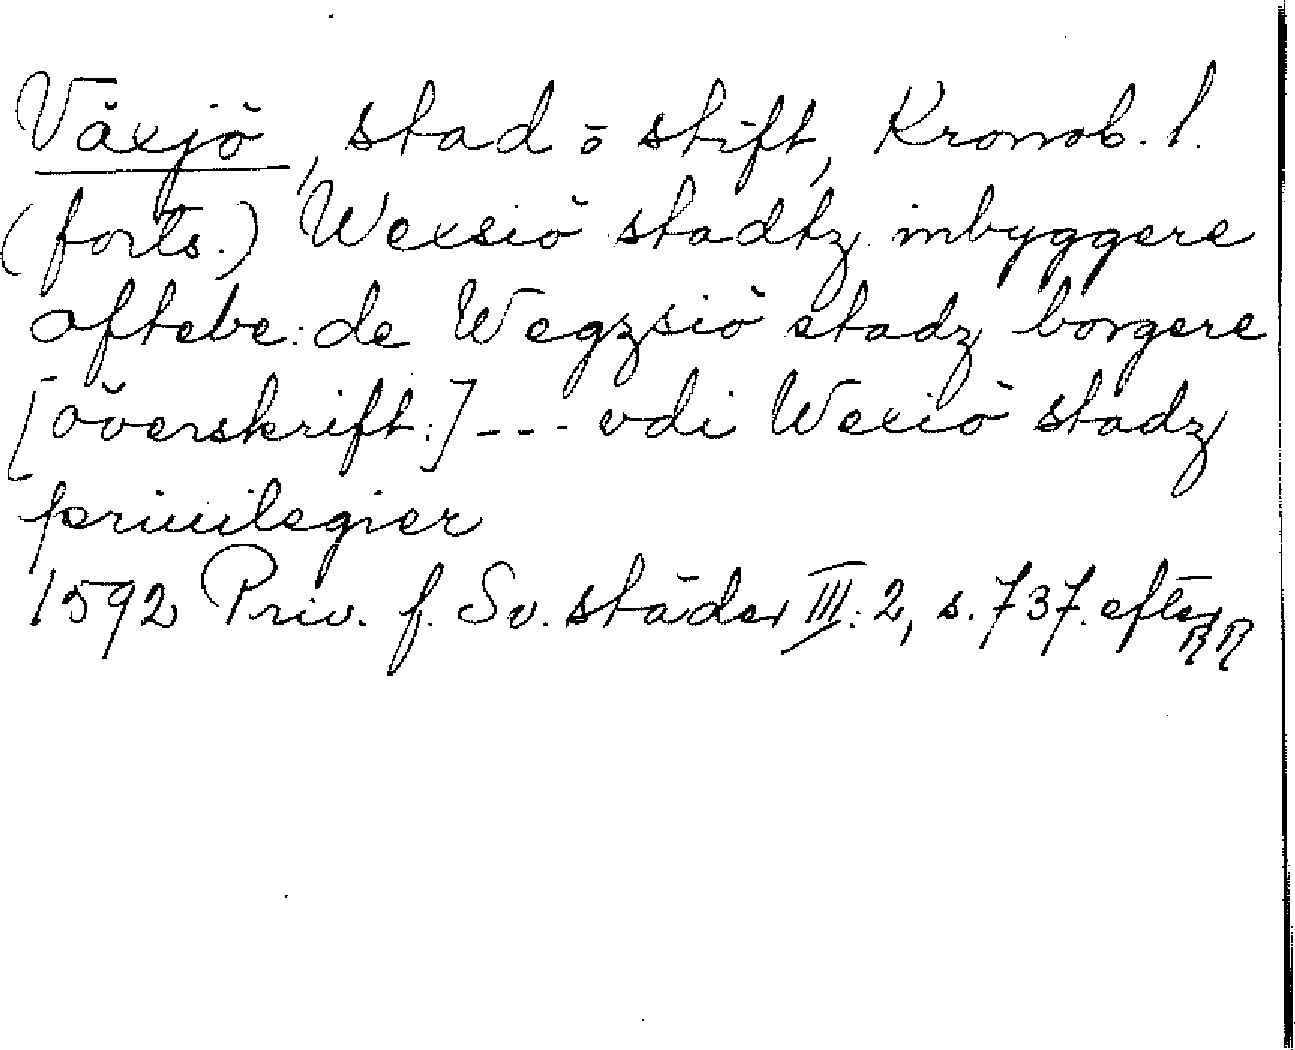 Växjö, stad o stift, Kronob. l.
(forts.) Wexsiö stadtz inbyggere
oftebe: de Wegzsiö stadz borgere
[överskrift:] --- vdi Wexiö stadz
priuilegier
1592 Priv. f. Sv. städer III: 2, s. 737. efter RR